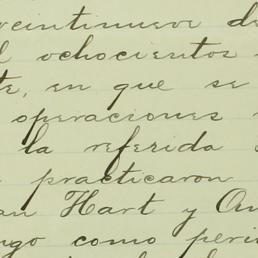 veintinueve de
ochocientos
te, en que se
operaciones
la referida
practicaron
an Hart y
ngo como peri